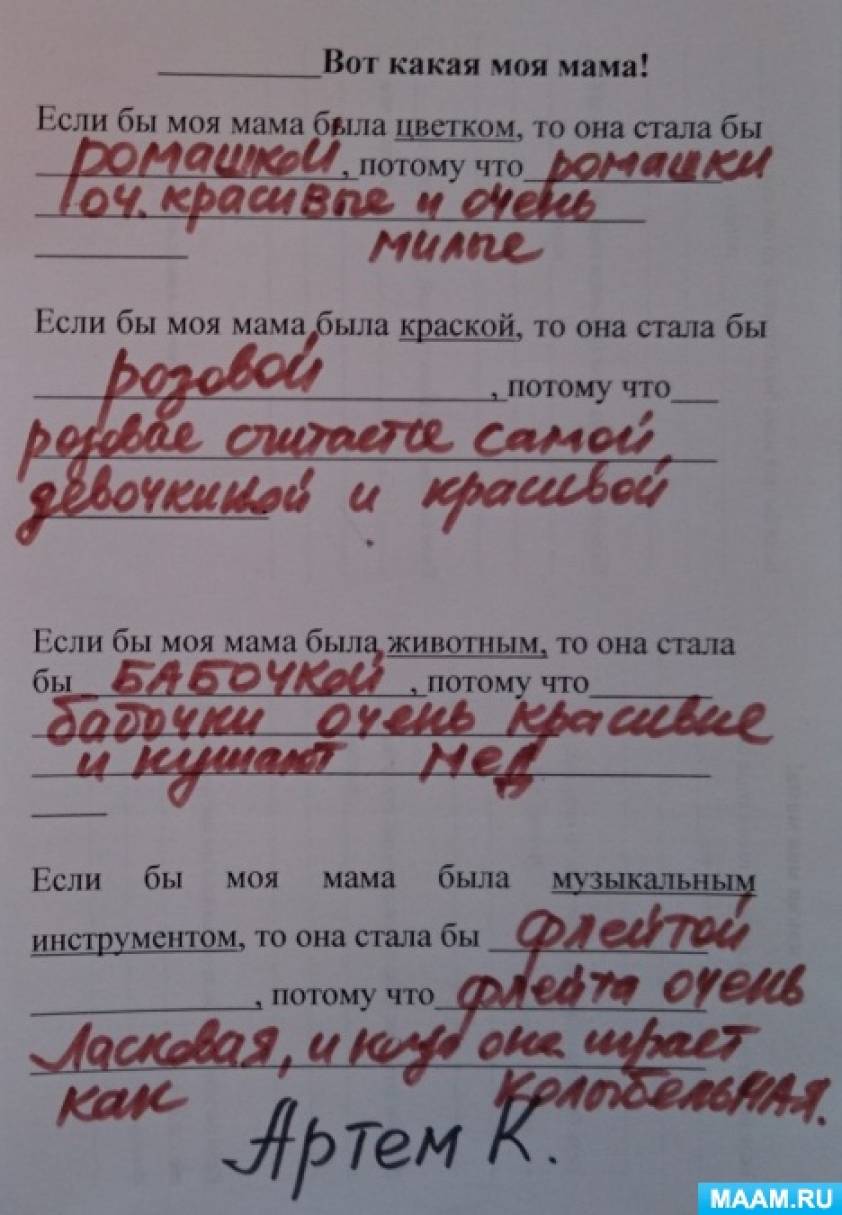 Вот какая моя мама!
Если бы моя мама была цветком, то она стала бы
ромашкой, потому что ромашки
оч. красивые и очень
милые
Если бы моя мама была краской, то она стала бы
розовой, потому что
розовае считаетсе самой
девочкиной и красивой
Если бы моя мама была животным, то она стала
бы БАБОЧКОЙ, потому что
бабочки очень красивые
и кушают мед
Если бы моя мама была музыкальным
инструментом, то она стала бы флейтой
, потому что флейта очень
Ласковая, и когда она играет
как колыбельная.
Артем К.
MAAM.RU